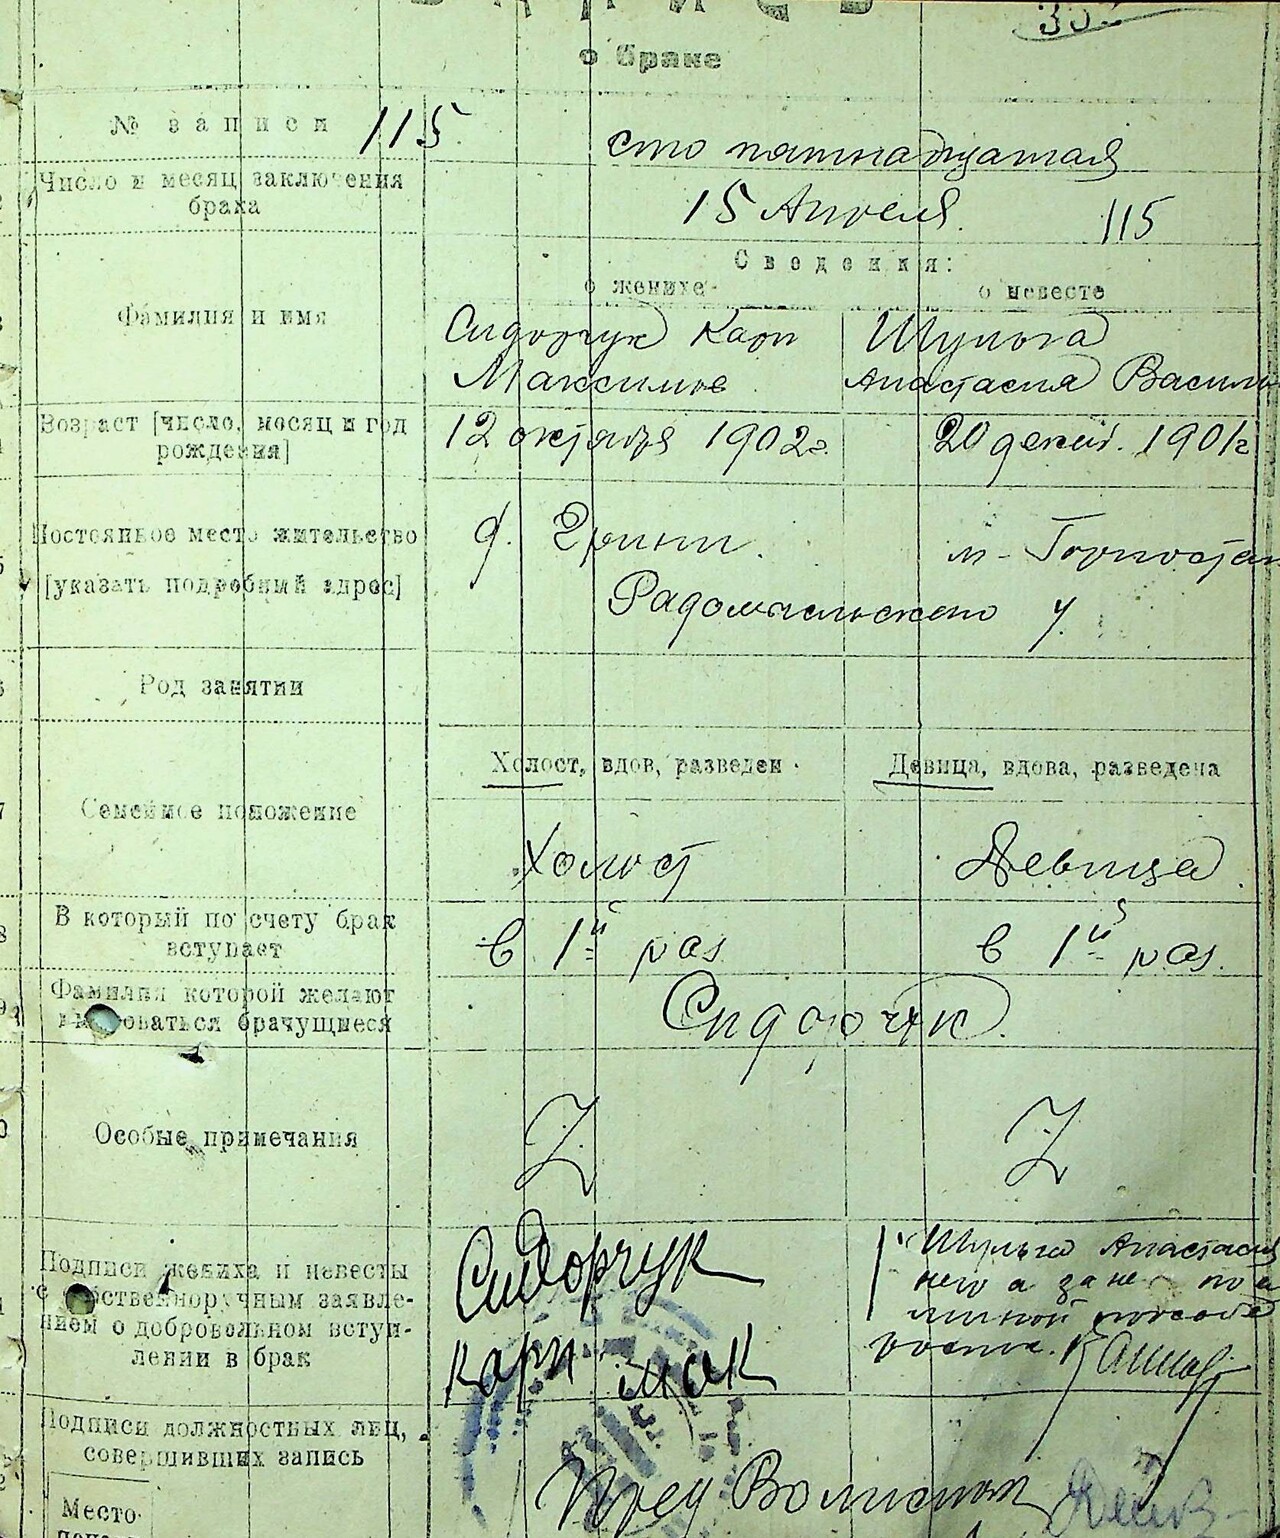 о браке
№ записи 115. сто пятнадцатая
Число и месяц заключения
брака
15 Апреля. 115
Сведения:
о женихе о невесте
Фамилия и имя
Сидорчук Карп Шульга
Максимов Анастасия Василь
Возраст [число, месяц и год
рождения]
12 октября 1902 г. 20 декаб. 1901 г
Постоянное место жительство
[указать подробный адрес]
д. м - Горностай
Радомысльского у.
Род занятии
Холост, вдов, разведен Девица, вдова, разведена
Семейное положение
Холост Девица.
В который по счету брак
вступает
в 1й раз в 1й раз.
Фамилия которой желают
именоваться брачущиеся
Сидорчук.
Особые примечания
Z Z
Подписи жениха и невесты
с собственноручным заявле-
нием о добровольном вступ-
лении в брак
Сидорчук
Карп Мак
Шульга Анастасия
Подписи должностных лиц,
совершивших запись
Пред
Место